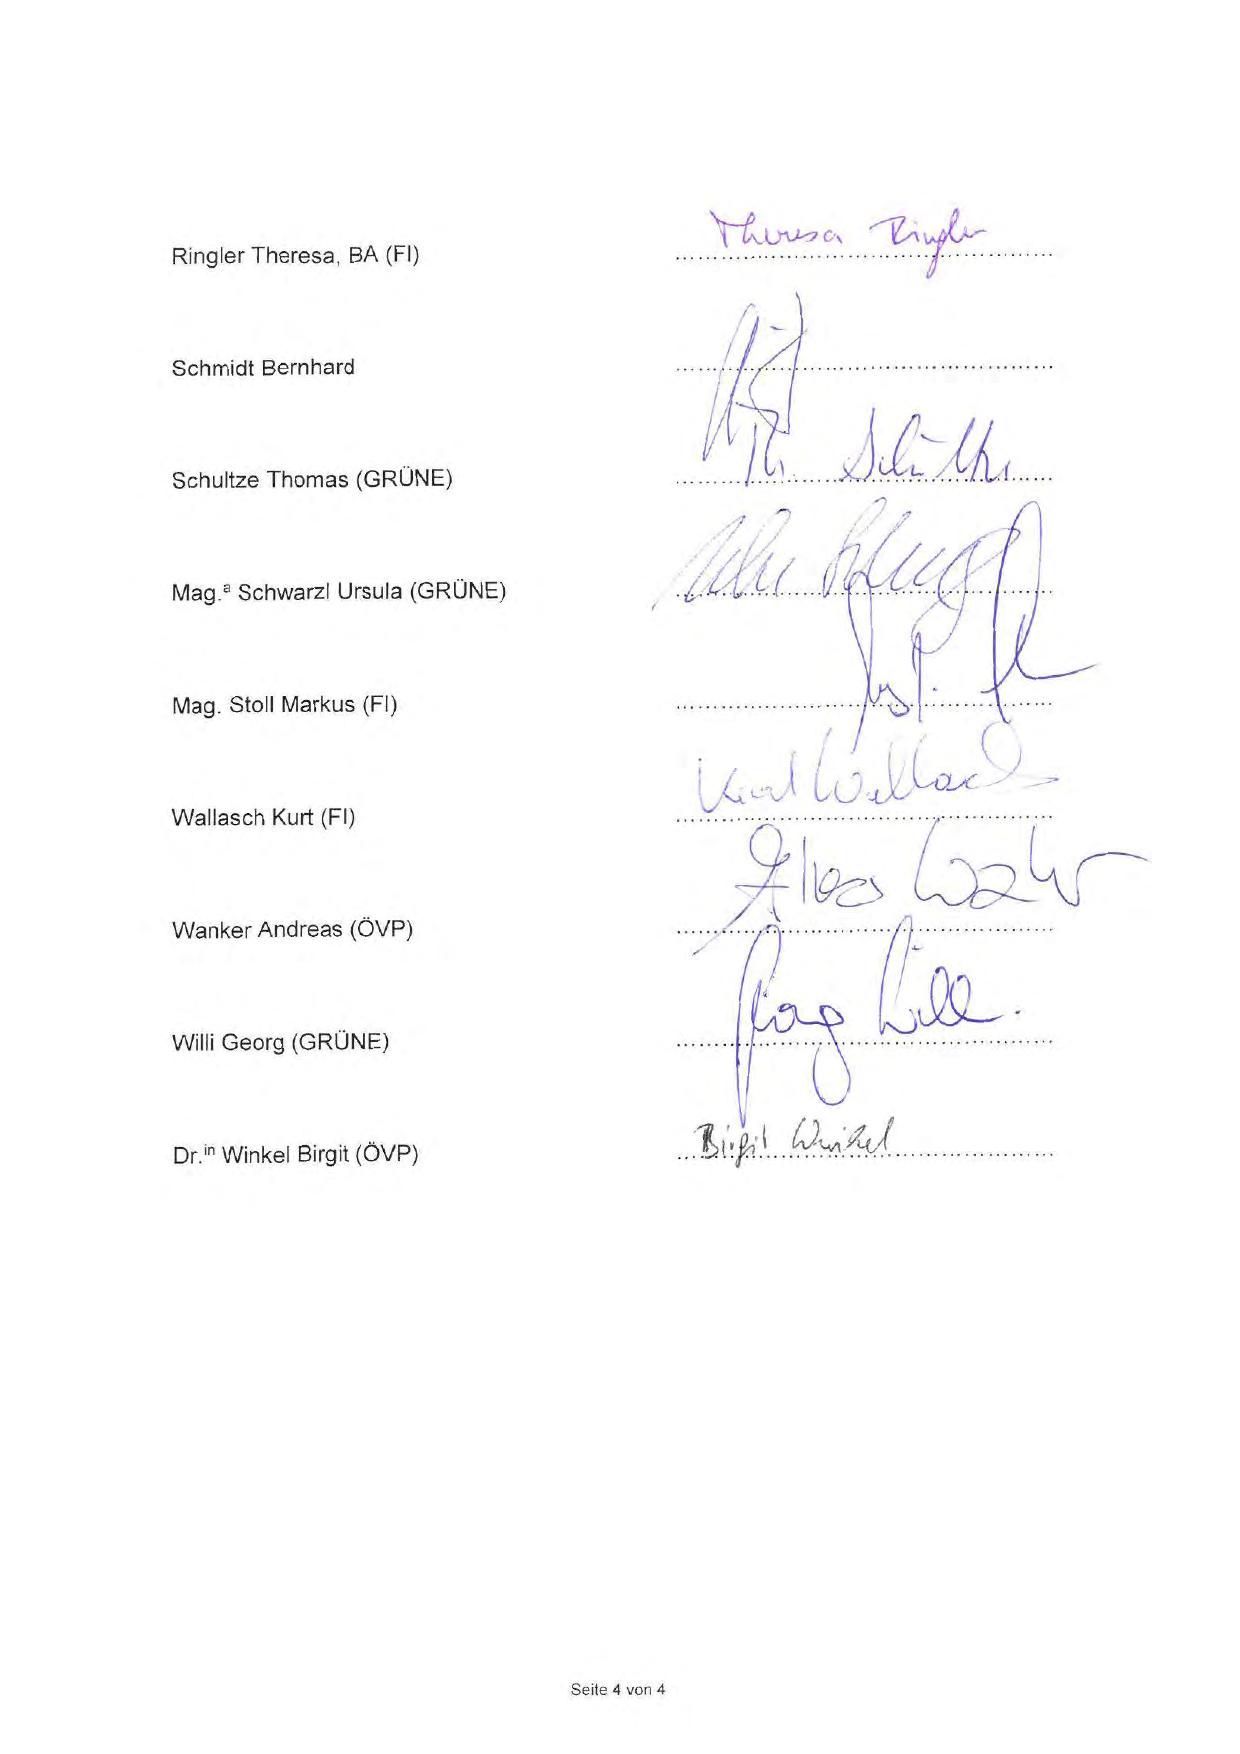 Ringler Theresa, BA (FI) Theresa Ringler
Schmidt Bernhard
Schultze Thomas (GRÜNE) Th.
Mag.ª Schwarzl Ursula (GRÜNE)
Mag. Stoll Markus (FI)
Wallasch Kurt (FI) Kurt Wallasch
Wanker Andreas (ÖVP)
Willi Georg (GRÜNE) Georg Willi
Dr.in Winkel Birgit (ÖVP) Birgit Winkel
Seite 4 von 4